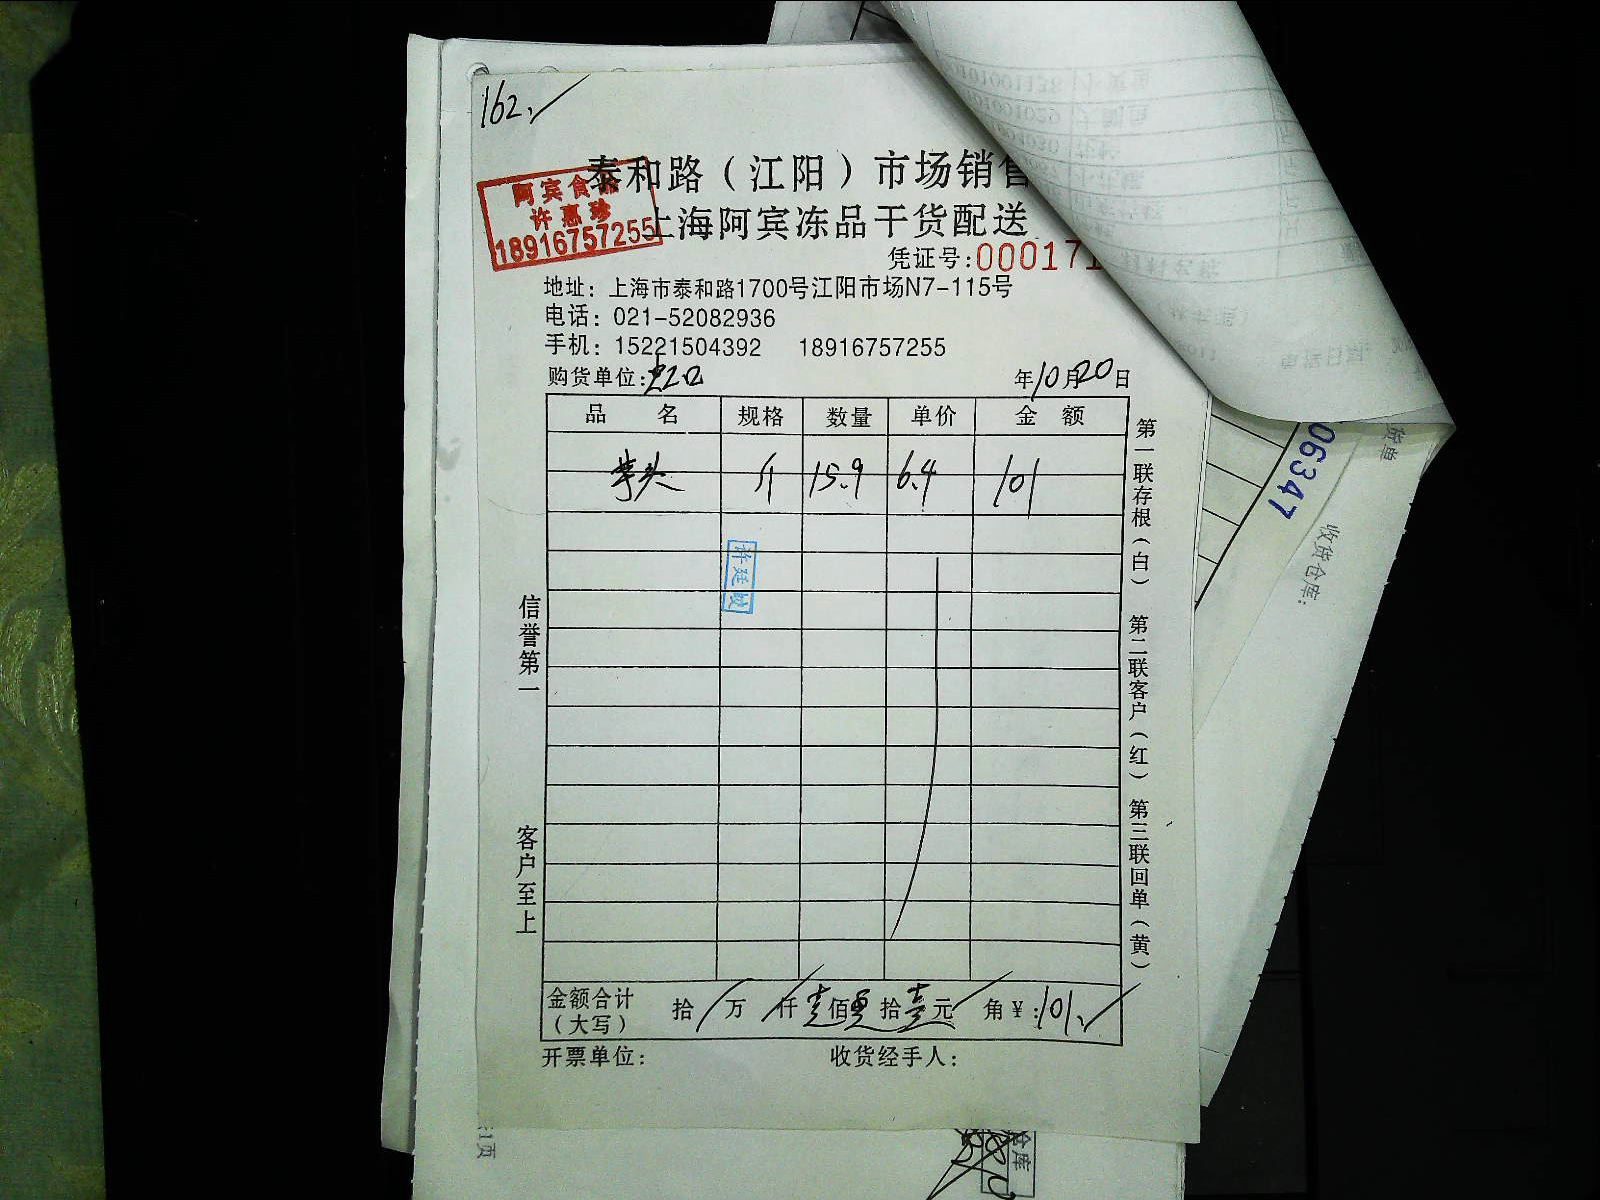 162.
泰和路（江阳）市场销售
上海阿宾冻品干货配送
阿宾食品
许惠珍
18916757255
凭证号:000171
地址：上海市泰和路1700号江阳市场N7-115号
电话：021-52082936
手机：15221504392 18916757255
购货单位: 年10月20日
品名 规格 数量 单价 金额
芋头 斤 15.9 6.4 101
许廷
信誉第一
客户至上
第一联存根（白） 第二联客户（红） 第三联回单（黄）
金额合计（大写） 拾 万 仟壹佰零拾壹元 角￥:101.
开票单位： 收货经手人：
06347
货单
收货仓库：
仓库
1页